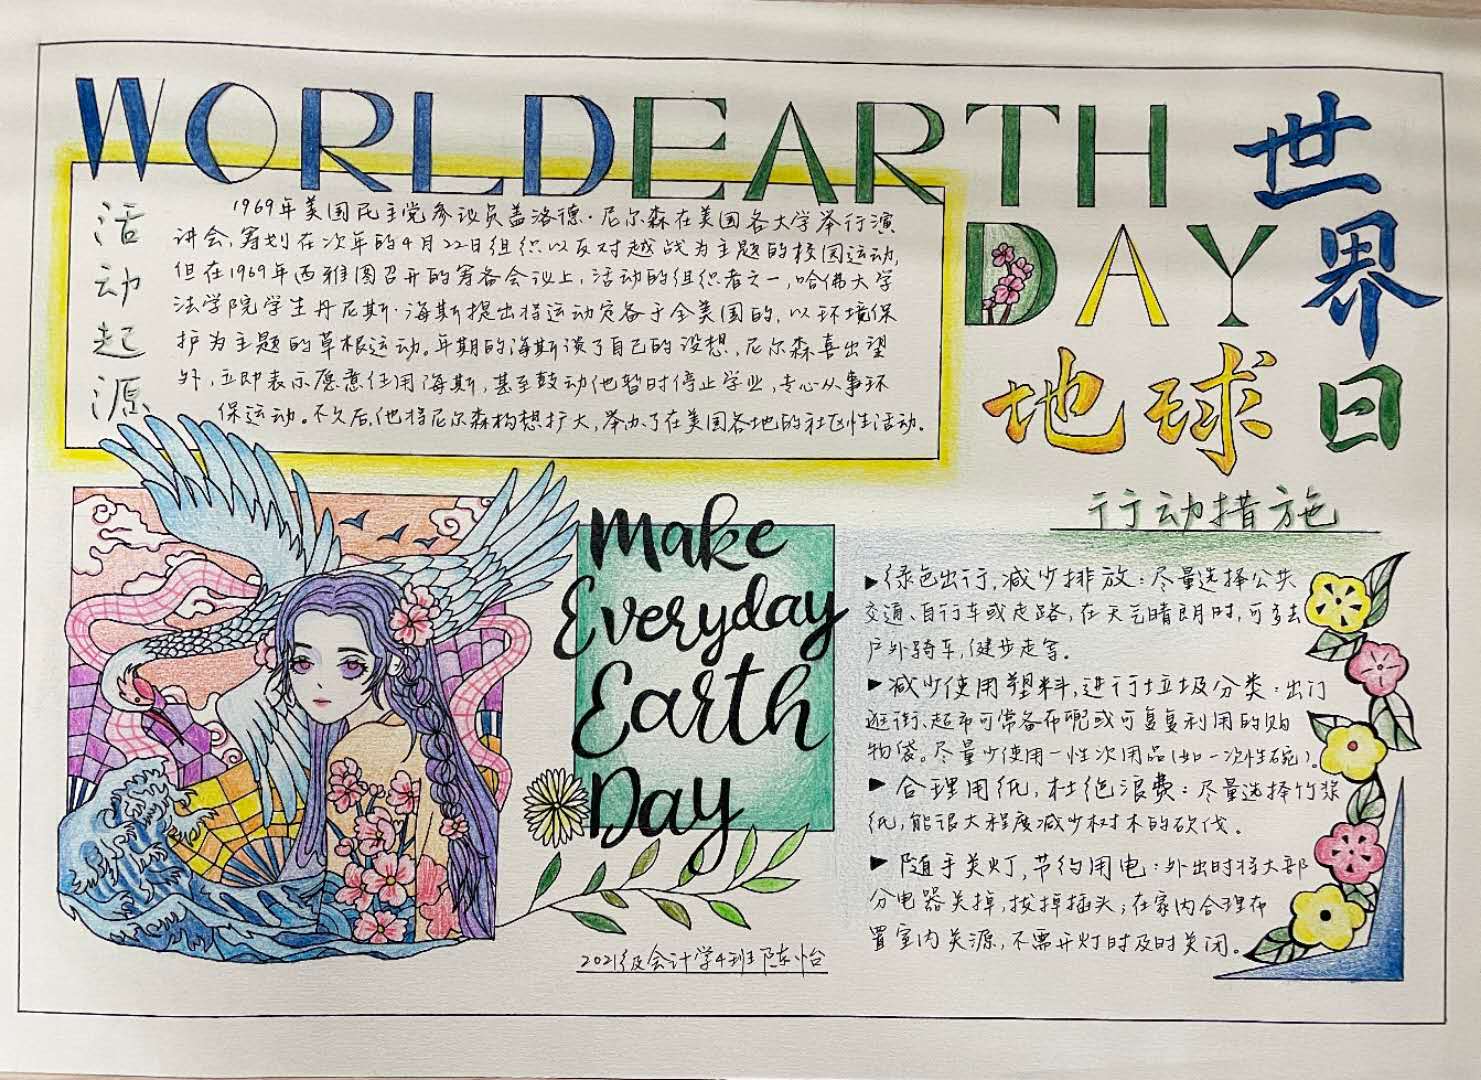 WORLD EARTH
DAY
世界
地球日
活动起源
1969年美国民主党参议员盖洛德·尼尔森在美国各大学举行演
讲会,筹划在次年的4月22日组织以反对越战为主题的校园运动,
但在1969年西雅图召开的筹备会议上,活动的组织者之一,哈佛大学
法学院学生丹尼斯·海斯提出将运动定备于全美国的,以环境保
护为主题的草根运动。年期的海斯谈了自己的设想,尼尔森喜出望
外,立即表示愿意任用海斯,甚至鼓动他暂时停止学业,专心从事环
保运动。不久后,他将尼尔森构想扩大,举办了在美国各地的社区性活动.
Make
Everyday
Earth
Day
2021级会计学4班陈怡
行动措施
▶绿色出行,减少排放:尽量选择公共
交通、自行车或走路,在天气晴朗时,可多去
户外骑车,健步走等。
▶减少使用塑料,进行垃圾分类:出门
逛街、超市可常备布呢或可复复利用的购
物袋。尽量少使用一性次用品(如一次性碗)。
▶合理用纸,杜绝浪费:尽量选择竹浆
纸,能很大程度减少树木的砍伐。
▶随手关灯,节约用电:外出时将大部
分电器关掉,拔掉插头;在家内合理布
置室内关源,不需开灯时及时关闭。